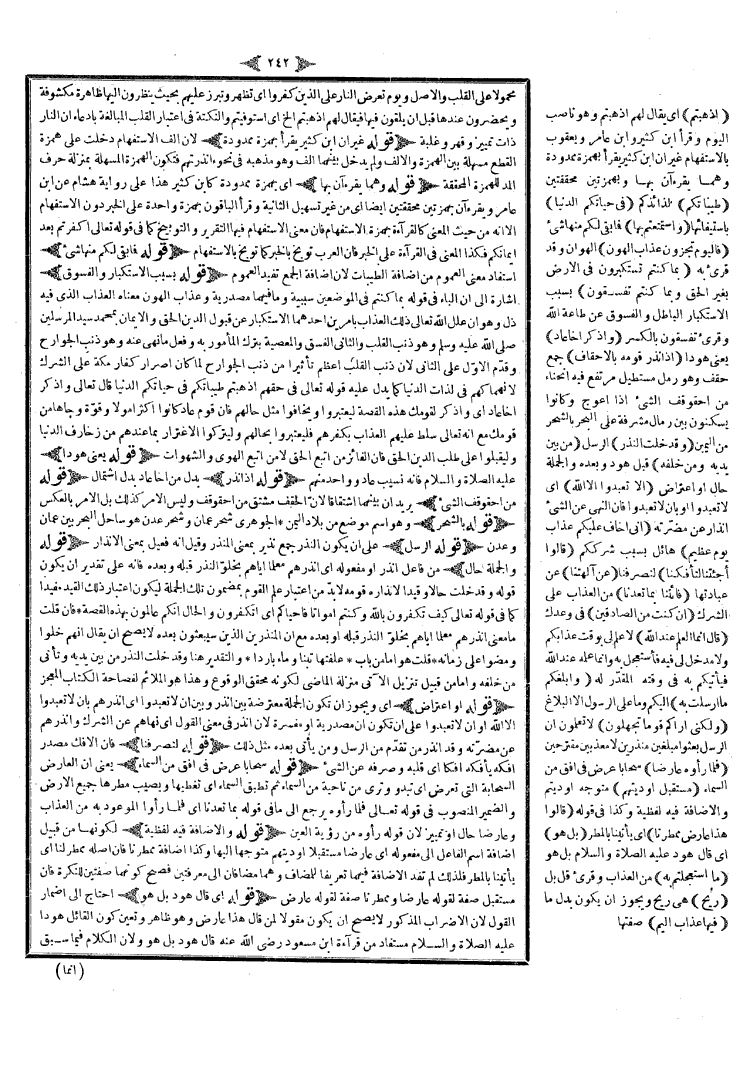 ﴿ ٢٤٢ ﴾
محمولا على القلب والاصل ويوم تعرض النار على الذين كفروا اى تظهر وتبرز عليهم بحيث ينظرون اليها ظاهرة مكشوفة
ويحضرون عندها قبل ان يلقون فيها فيقال لهم اذهبتم الخ اى استوفيتم والنكتة فى اعتبار القلب المبالغة بادعاء ان النار
ذات تمييز وقهر وغلبة ﴿ قوله غيران ابن كثير يقرأ بهمزة ممدودة ﴾ لان الف الاستفهام دخلت على همزة
القطع مسهلة بين الهمزة والالف ولم يدخل بينهما الف وهو مذهبه فى نحو اانذرتهم فتكون الهمزة المسهلة بمنزلة حرف
المد للهمزة المحققة ﴿ قوله وهما يقرءآن بها ﴾ اى بهمزة ممدودة كابن كثير هذا على رواية هشام عن ابن
عامر ويقرءآن بهمزتين محققتين ايضا اى من غير تسهيل الثانية وقرأ الباقون بهمزة واحدة على الخبر دون الاستفهام
الاانه من حيث المعنى كالقرآءة بهمزة الاستفهام فان معنى الاستفهام فيها التقرير والتوبيخ كما فى قوله تعالى اكفرتم بعد
ايمانكم فكذا المعنى فى القرآءة على الخبر فان العرب توبخ بالخبر كما توبخ بالاستفهام ﴿ قوله فابقى لكم منها شئ ﴾
استفاد معنى العموم من اضافة الطيبات لان اضافة الجمع تفيد العموم ﴿ قوله بسبب الاستكبار والفسوق ﴾
اشارة الى ان الباء فى قوله بما كنتم فى الموضعين سببية وما فيهما مصدرية وعذاب الهون معناه العذاب الذى فيه
ذل وهوان علل الله تعالى ذلك العذاب بامرين احدهما الاستكبار عن قبول الدين الحق والايمان بمحمد سيد المرسلين
صلى الله عليه وسلم وهو ذنب القلب والثانى الفسق والمعصية بترك المأمور به وفعل مانهى عنه وهو ذنب الجوارح
وقدم الاول على الثانى لان ذنب القلب اعظم تأثيرا من ذنب الجوارح لما كان اصرار كفار مكة على الشرك
لانهماكهم فى لذات الدنيا كما يدل عليه قوله تعالى فى حقهم اذهبتم طيباتكم فى حياتكم الدنيا قال تعالى واذكر
اخاعاد اى واذكر لقومك هذه القصة ليعتبروا ويخافوا مثل حالهم فان قوم عاد كانوا اكثر اموالا وقوة وجاها من
قومك مع انه تعالى سلط عليهم العذاب بكفرهم فليعتبروا بحالهم وليتركوا الاغترار بما عندهم من زخارف الدنيا
وليقبلوا على طلب الدين الحق فان الفائز من اتبع الحق لامن اتبع الهوى والشهوات ﴿ قوله يعنى هودا ﴾
عليه الصلاة والسلام فانه نسيب عاد وواحد منهم ﴿ قوله اذ انذر ﴾ بدل من اخاعاد بدل اشتمال ﴿ قوله
من احقوقف الشئ ﴾ يريد ان بينهما اشتقاقا لان الحقف مشتق من احقوقف وليس الامر كذلك بل الامر بالعكس
﴿ قوله بالشحر ﴾ وهو اسم موضع من بلاد اليمن * الجوهرى شحر عمان وشحر عدن هو ساحل البحر بين عمان
وعدن ﴿ قوله الرسل ﴾ على ان يكون النذر جمع نذير بمعنى المنذر وقيل انه فعيل بمعنى الانذار ﴿ قوله
والجملة حال ﴾ من فاعل انذر او مفعوله اى انذرهم معلما اياهم بخلو النذر قبله وبعده فانه على تقدير ان يكون
قوله وقد خلت حالا وقيدا لانذاره قومه لابد من اعتبار علم القوم بمضمون تلك الجملة ليكون اعتبار ذلك القيد مفيدا
كما فى قوله تعالى كيف تكفرون بالله وكنتم امواتا فاحياكم اى اتكفرون والحال انكم عالمون بهذه القصة * فان قلت
مامعنى انذرهم معلما اياهم بخلو النذر قبله او بعده مع ان المنذرين الذين سيبعثون بعده لايصح ان يقال انهم خلوا
ومضوا على زمانه * قلت هو امامن باب * علفتها تبنا وماء باردا * والتقدير هنا وقد خلت النذر من بين يديه وتأتى
من خلفه وامامن قبيل تنزيل الآتى منزلة الماضى لكونه محقق الوقوع وهذا هو الملائم لفصاحة الكتاب المعجز
﴿ قوله او اعتراض ﴾ اى ويجوز ان تكون الجملة معترضة بين انذر وبين ان لاتعبدوا اى انذرهم بان لاتعبدوا
الا الله او ان لاتعبدوا على ان تكون ان مصدرية او مفسرة لان انذر فى معنى القول اى نهاهم عن الشرك وانذرهم
عن مضرته وقد انذر من تقدم من الرسل ومن يأتى بعده مثل ذلك ﴿ قوله لتصرفنا ﴾ فان الافك مصدر
افكه يأفكه افكا اى قلبه وصرفه عن الشئ ﴿ قوله سحابا عرض فى افق من السماء ﴾ يعنى ان العارض
السحابة التى تعرض اى تبدو وترى من ناحية من السماء ثم تطبق السماء اى تغطيها ويصيب مطرها جميع الارض
والضمير المنصوب فى قوله تعالى فلما رأوه يرجع الى مافى قوله بما تعدنا اى فلما رأوا الموعود به من العذاب
وعارضا حال او تمييز لان قوله رأوه من رؤية العين ﴿ قوله والاضافة فيه لفظية ﴾ لكونها من قبيل
اضافة اسم الفاعل الى مفعوله اى عارضا مستقبلا اوديتهم متوجها اليها وكذا اضافة ممطرنا فان اصله ممطر لنا اى
يأتينا بالمطر فلذلك لم تفد الاضافة فيهما تعريفا للمضاف وهما مضافان الى معرفتين فصح كونهما صفتين للنكرة فان
مستقبل صفة لقوله عارضا وممطرنا صفة لقوله عارض ﴿ قوله اى قال هود بل هو ﴾ احتاج الى اضمار
القول لان الاضراب المذكور لايصح ان يكون مقولا لمن قال هذا عارض وهو ظاهر وتعين كون القائل هودا
عليه الصلاة والسلام مستفاد من قرآءة ابن مسعود رضى الله عنه قال هود بل هو ولان الكلام فيما سبق
(انما)
(اذهبتم) اى يقال لهم اذهبتم وهو ناصب
اليوم وقرأ ابن كثير وابن عامر ويعقوب
بالاستفهام غيران ابن كثير يقرأ بهمزة ممدودة
وهما يقرءآن بها وبهمزتين محققتين
(طيباتكم) لذائذكم (فى حياتكم الدنيا)
باستيفائها (واستمتعتم بها) فابقى لكم منها شئ
(فاليوم تجزون عذاب الهون) الهوان وقد
قرئ به (بما كنتم تستكبرون فى الارض
بغير الحق وبما كنتم تفسقون) بسبب
الاستكبار الباطل والفسوق عن طاعة الله
وقرئ تفسقون بالكسر (واذكر اخاعاد)
يعنى هودا (اذ انذر قومه بالاحقاف) جمع
حقف وهو رمل مستطيل مرتفع فيه انحناء
من احقوقف الشئ اذا اعوج وكانوا
يسكنون بين رمال مشرفة على البحر بالشحر
من اليمن (وقد خلت النذر) الرسل (من بين
يديه ومن خلفه) قبل هود وبعده والجملة
حال او اعتراض (الا تعبدوا الا الله) اى
لاتعبدوا او بان لاتعبدوا فان النهى عن الشئ
انذار عن مضرته (انى اخاف عليكم عذاب
يوم عظيم) هائل بسبب شرككم (قالوا
أجئتنا لتأفكنا) لتصرفنا (عن آلهتنا) عن
عبادتها (فأتنا بما تعدنا) من العذاب على
الشرك (ان كنت من الصادقين) فى وعدك
(قال انما العلم عند الله) لاعلم لى بوقت عذابكم
ولا مدخل لى فيه فأستعجل به وانما علمه عند الله
فيأتيكم به فى وقته المقدر له (وابلغكم
ما ارسلت به) اليكم وما على الرسول الا البلاغ
(ولكنى اراكم قوما تجهلون) لاتعلمون ان
الرسل بعثوا مبلغين منذرين لا معذبين مقترحين
(فلما رأوه عارضا) سحابا عرض فى افق من
السماء (مستقبل اوديتهم) متوجه اوديتهم
والاضافة فيه لفظية وكذا فى قوله (قالوا
هذا عارض ممطرنا) اى يأتينا بالمطر (بل هو)
اى قال هود عليه الصلاة والسلام بل هو
(ما استعجلتم به) من العذاب وقرئ قل بل
(ريح) هى ريح ويجوز ان يكون بدل ما
(فيها عذاب اليم) صفتها